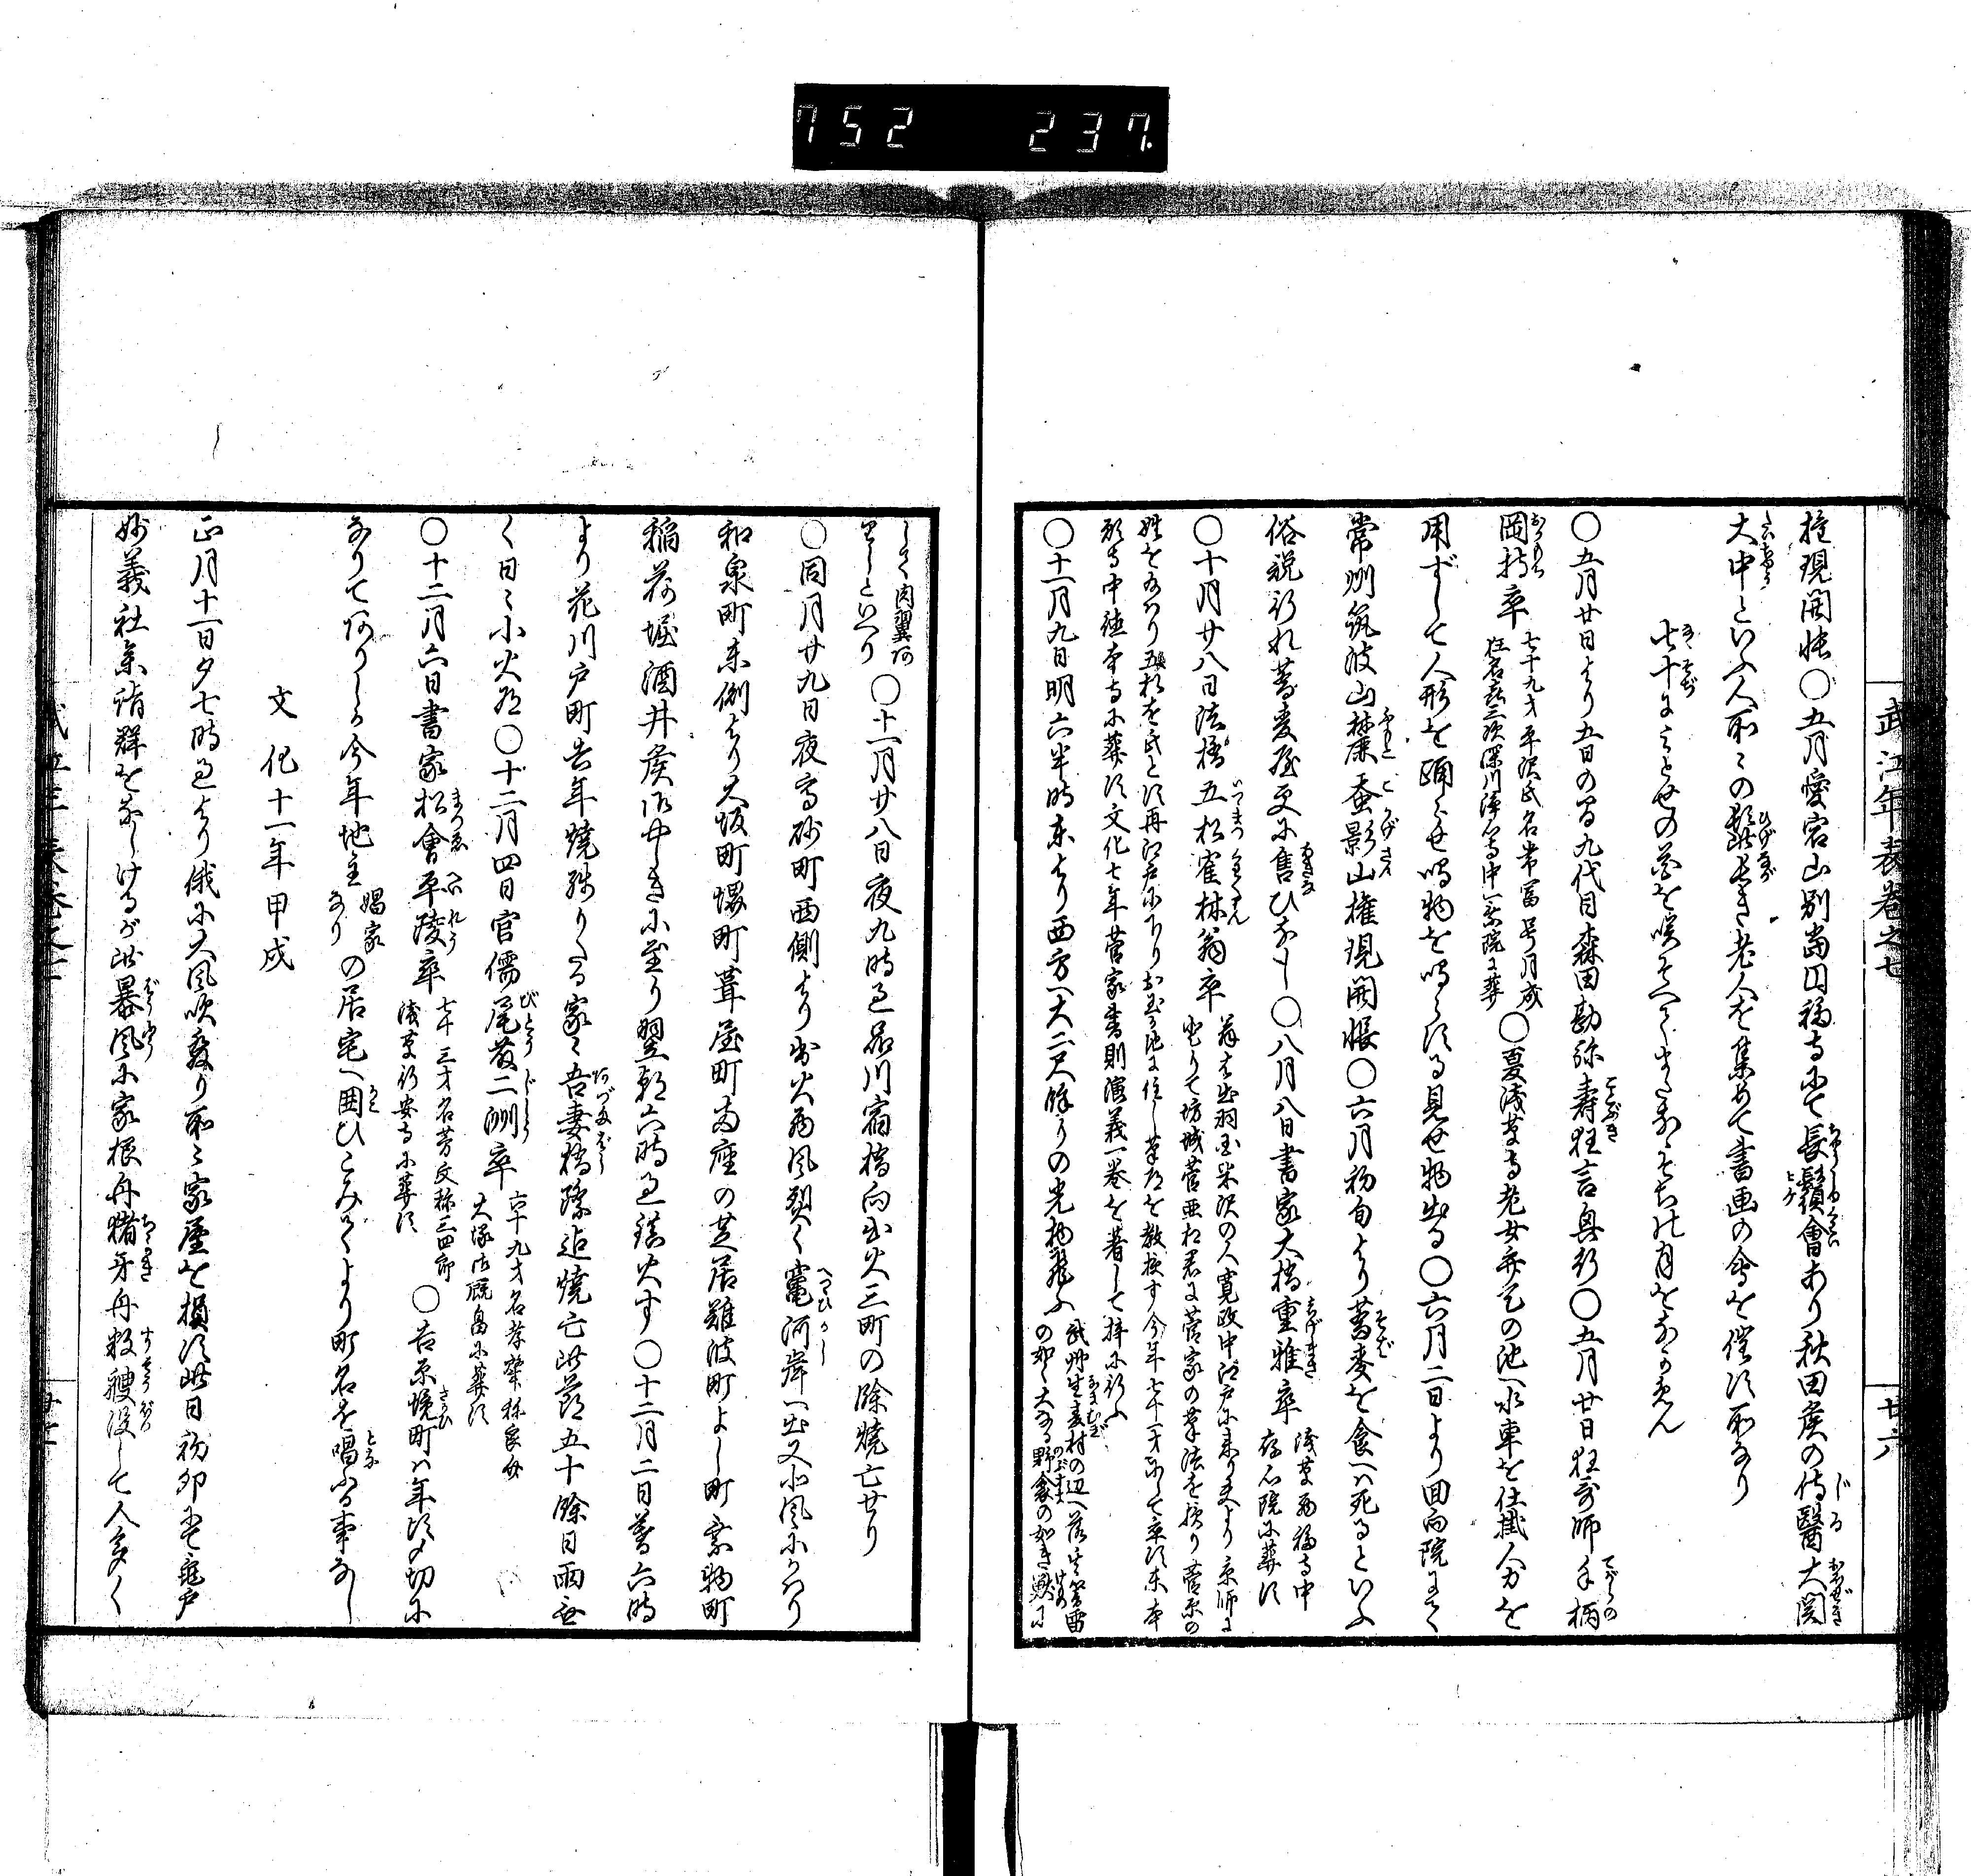 752 237.
武江年表巻之七
廿六
権現開帳〇五月愛宕山別当円福寺にて長鬚會あり秋田侯の侍醫大関
大中といふ人所々の髭長き老人を集めて書画の會を催す所なり
〇五月廿日より五日の間九代目森田勘弥寿狂言興行〇五月廿日狂哥師手柄
岡持卒 七十九才平沢氏名常冨号月成
狂名喜三次深川浄心寺中一乗院に葬
〇夏浅草寺老女弁天の池へ水車を仕掛人力を
用ずして人形を踊らせ鳴物を鳴らする見せ物出る〇六月二日より回向院にて
常州筑波山麓蚕影山権現開帳〇六月初旬より蕎麦を食へハ死るといふ
俗説行れ蕎麦屋更に售ひなし〇八月八日書家大橋重雅卒 浅草 福寺中
存心院に葬す
〇十月廿八日法橋五松寉林翁卒 翁は出羽国米沢の人寛政中江戸に来り夫より京師に
登りて坊城菅亜相君に菅家の筆法を授り菅原の
姓を賜はり五松を氏とす再江戸に下りお玉が池に住し筆道を教授す今年七十一才にして卒す東本
願寺中徳本寺に葬す文化七年菅家書則演義一巻を著して梓に行ふ
〇十一月九日明六半時東より西方へ大二尺餘りの光物飛ふ 武州生麦村の辺へ落其響雷
の如く大なる野衾の如き獣に
して肉翼あ
りしといへり
〇十一月廿八日夜九時過品川宿橋向出火三町の餘焼亡せり
〇同月廿九日夜高砂町西側より出火西風烈く竈河岸へ出又北風にかはり
和泉町東側より大坂町堺町葺屋町両座の芝居難波町よし町乗物町
稲荷堀酒井侯御中やしきに至り翌朝六時過鎮火す〇十二月二日暮六時
より花川戸町去年焼残りたる家々吾妻橋際迄焼亡此節五十餘日雨無
く日々小火有〇十二月四日官儒尾藤二洲卒 六十九才名孝肇称良助
大塚御厩畠に葬す
〇十二月六日書家松會平陵卒 七十三才名芳文称三四郎
浅草行安寺に葬す
〇吉原境町ハ年頃〆切に
なりてありしか今年地主 娼家
なり
の居宅へ囲ひこみてより町名を唱ふる事なし
文化十一年甲戌
正月十一日夕七時過より俄に大風吹発り所々家屋を損す此日初卯にて亀戸
妙義社参詣群をなしけるが此暴風に家根舟猪牙舟数艘没して人多く